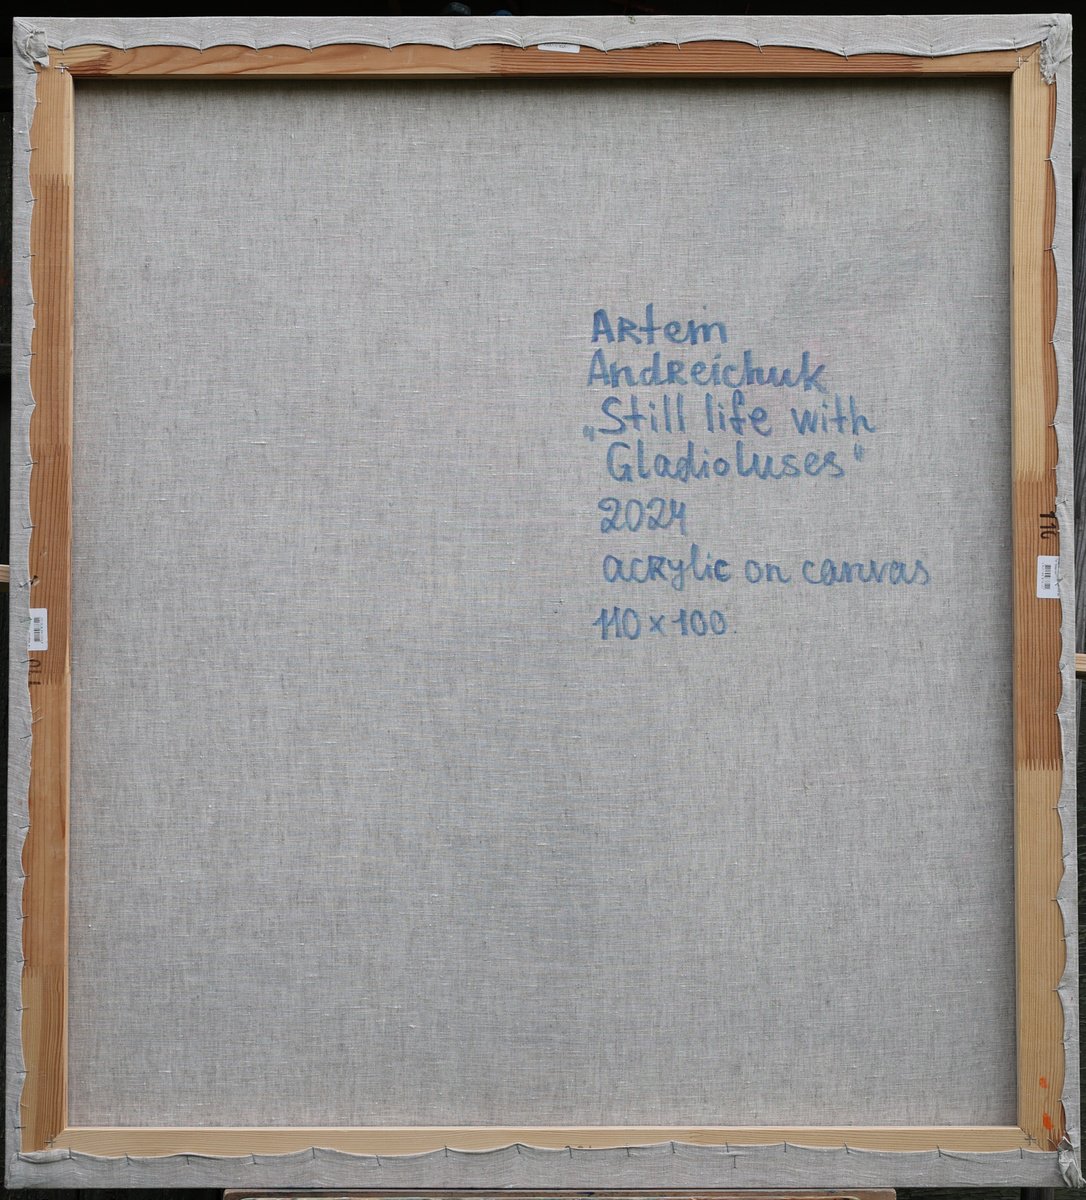 Artem
Andreichuk
„Still life with
Gladioluses"
2024
acrylic on canvas
110 x 100.
110